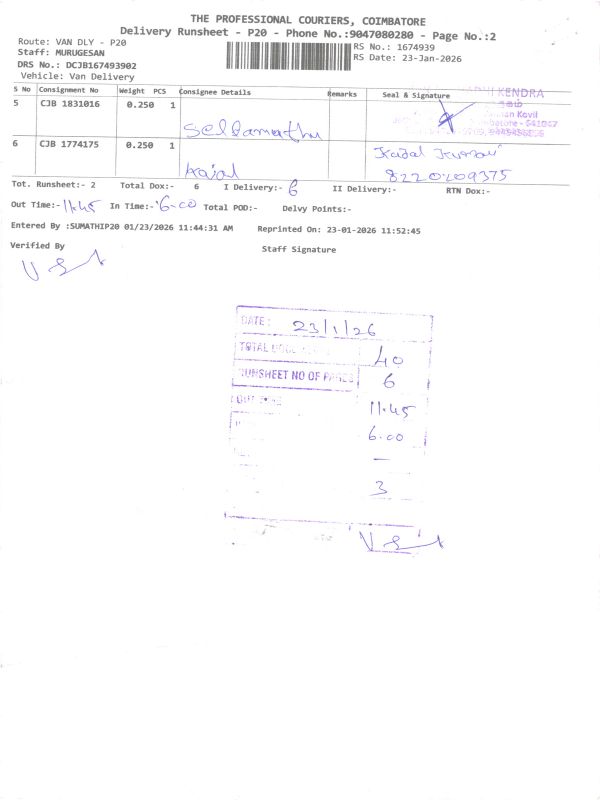 THE PROFESSIONAL COURIERS, COIMBATORE
Delivery Runsheet - P20 - Phone No.:9047080280 - Page No.:2
Route: VAN DLY - P20
Staff: MURUGESAN
DRS No.: DCJB167493902
Vehicle: Van Delivery
RS No.: 1674939
RS Date: 23-Jan-2026
S No Consignment No Weight PCS Consignee Details Remarks Seal & Signature
KENDRA
5 CJB 1831016 0.250 1
Kovil
6 CJB 1774175 0.250 1 kajal Kajal Kumari
8220209375
Tot. Runsheet:- 2 Total Dox:- 6 I Delivery:- 6 II Delivery:- RTN Dox:-
Out Time:- 11.45 In Time:- 6.00 Total POD:- Delvy Points:-
Entered By :SUMATHIP20 01/23/2026 11:44:31 AM Reprinted On: 23-01-2026 11:52:45
Verified By Staff Signature
DATE: 23/1/26
TOTAL 40
RUNSHEET NO OF PAGES 6
OUT 11.45
6.00
—
3